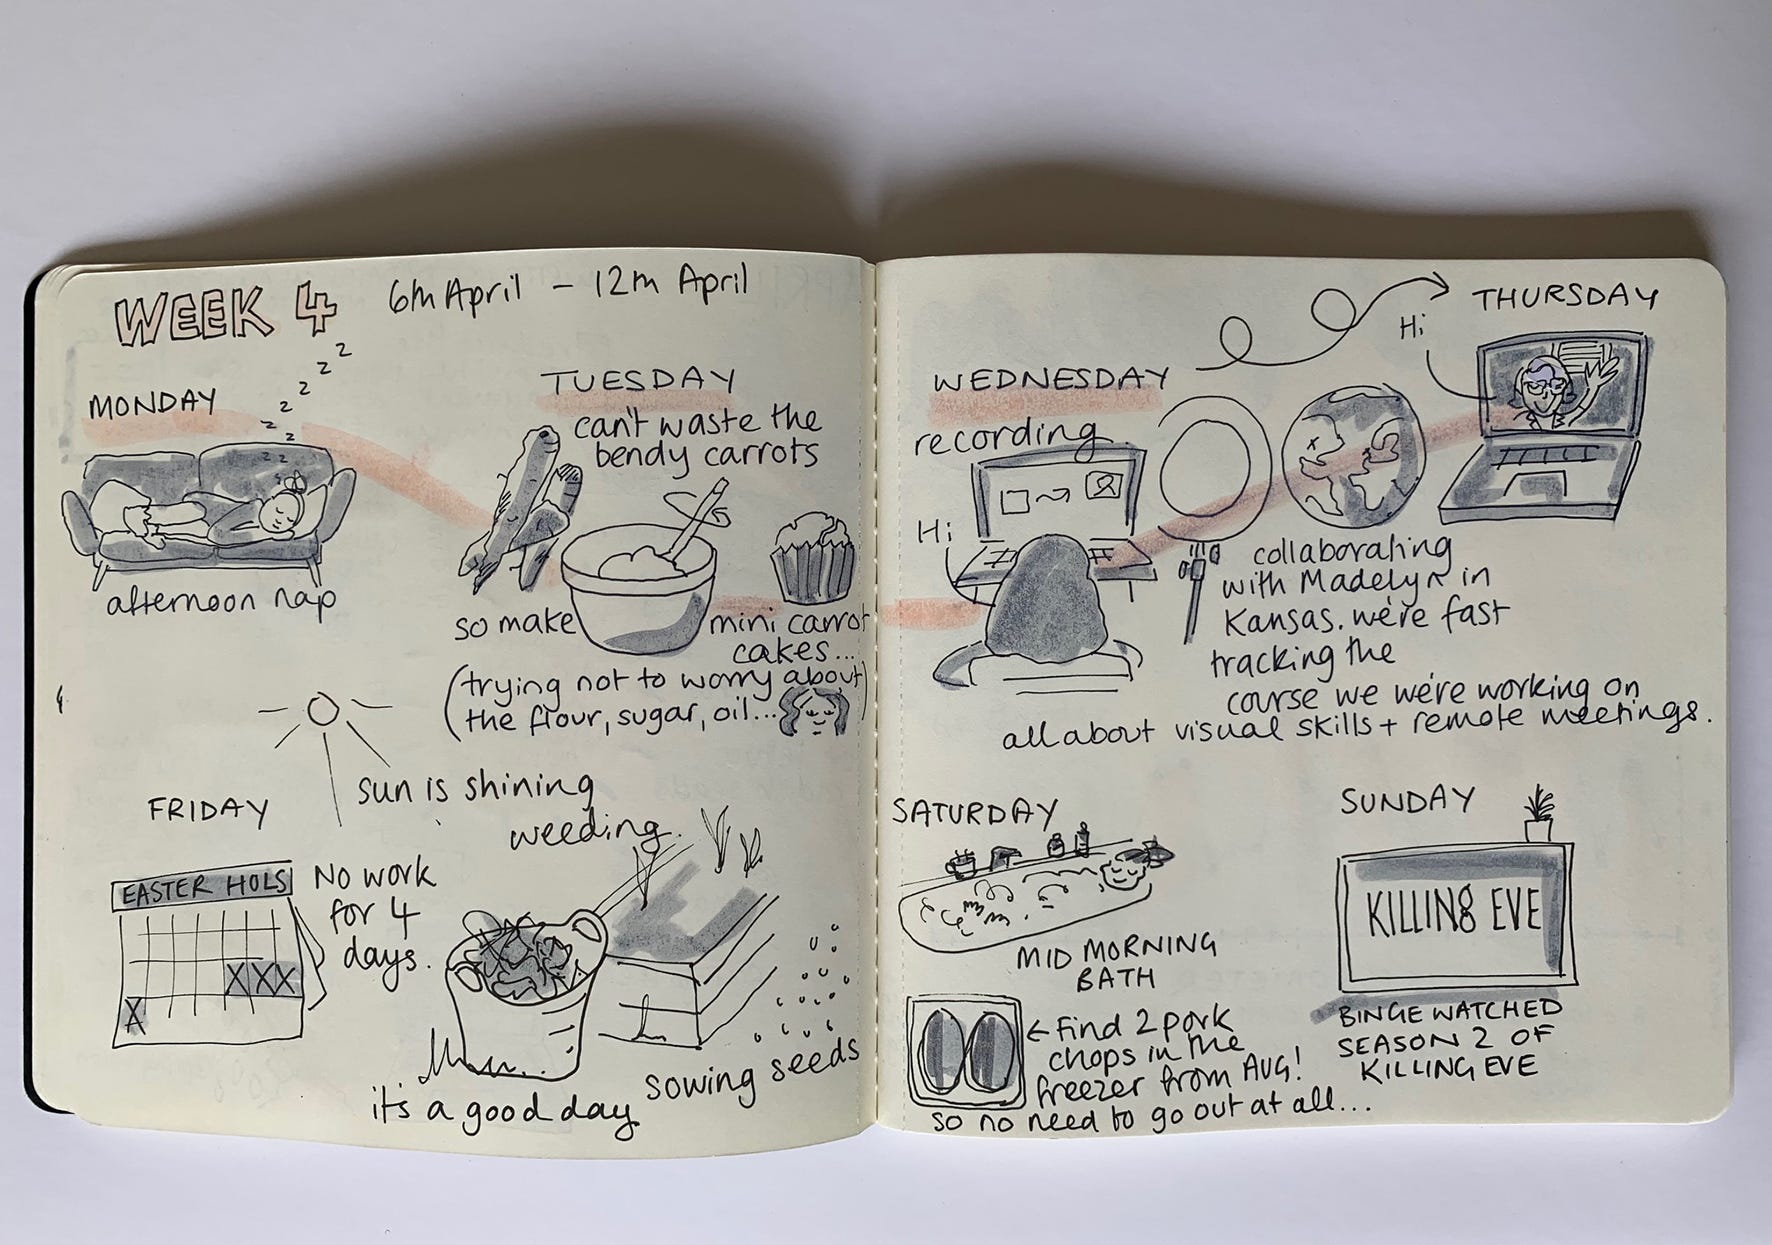 WEEK 4 6th April - 12th April
MONDAY
z z z z z z z
afternoon nap
TUESDAY
can't waste the
bendy carrots
so make
mini carrot
cakes...
(trying not to worry about
the flour, sugar, oil... )
WEDNESDAY
recording
Hi
THURSDAY
Hi
collaborating
with Madelyn in
Kansas. we're fast
tracking the
course we we're working on
all about visual skills + remote meetings.
FRIDAY
EASTER HOLS
X X X
X
No work
for 4
days.
sun is shining
weeding.
sowing seeds
it's a good day
SATURDAY
MID MORNING
BATH
← Find 2 pork
chops in the
freezer from AUG!
so no need to go out at all...
SUNDAY
KILLING EVE
BINGE WATCHED
SEASON 2 OF
KILLING EVE